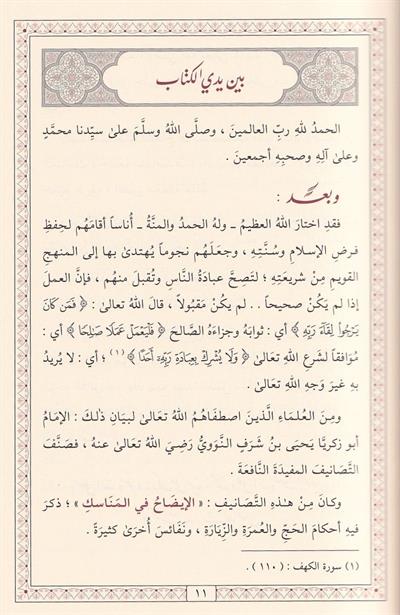 بين يدي الكتاب
الحمدُ للهِ ربِّ العالمين ، وصلَّى اللهُ وسلَّمَ علىٰ سيِّدنا محمَّدٍ
وعلىٰ آلِهِ وصحبِهِ أجمعين .
وبعد :
فقدِ اختارَ اللهُ العظيمُ ـ ولهُ الحمدُ والمنَّةُ ـ أُناساً أقامَهُم لحِفظِ
فرضِ الإسلامِ وسُنَّتِهِ ، وجعلَهُم نجوماً يُهتدىٰ بها إلى المنهجِ
القويمِ مِنْ شريعَتِهِ ؛ لتَصِحَّ عبادةُ النَّاسِ وتُقبلَ منهُم ، فإنَّ العملَ
إذا لم يَكُنْ صحيحاً . . لم يكُنْ مَقبُولاً ، قالَ اللهُ تعالىٰ : ﴿ فَمَن كَانَ
يَرْجُواْ لِقَآءَ رَبِّهِۦ ﴾ أي : ثوابَهُ وجزاءَهُ الصَّالحَ ﴿ فَلْيَعْمَلْ عَمَلًا صَٰلِحًا ﴾ أي :
مُوَافقاً لشَرعِ اللهِ تعالىٰ ﴿ وَلَا يُشْرِكْ بِعِبَادَةِ رَبِّهِۦٓ أَحَدًۢا ﴾(١) ؛ أي : لا يُريدُ
بِهِ غيرَ وَجهِ اللهِ تعالىٰ .
ومِنَ العُلماءِ الَّذينَ اصطفَاهُمُ اللهُ تعالىٰ لبيَانِ ذٰلكَ : الإمَامُ
أبو زكريَّا يَحيَى بنُ شَرَفٍ النَّوَوِيُّ رَضِيَ اللهُ تعالىٰ عنهُ ، فصَنَّفَ
التَّصَانيفَ المفيدَةَ النَّافعَةَ .
وكانَ مِنْ هٰذِهِ التَّصَانيفِ : « الإيضَاحُ في المَنَاسكِ » ؛ ذكرَ
فيهِ أحكامَ الحَجِّ والعُمرَةِ والزِّيَارَةِ ، ونَفَائسَ أُخرَىٰ كثيرَةً .
(١) سورة الكهف : ( ١١٠ ) .
١١